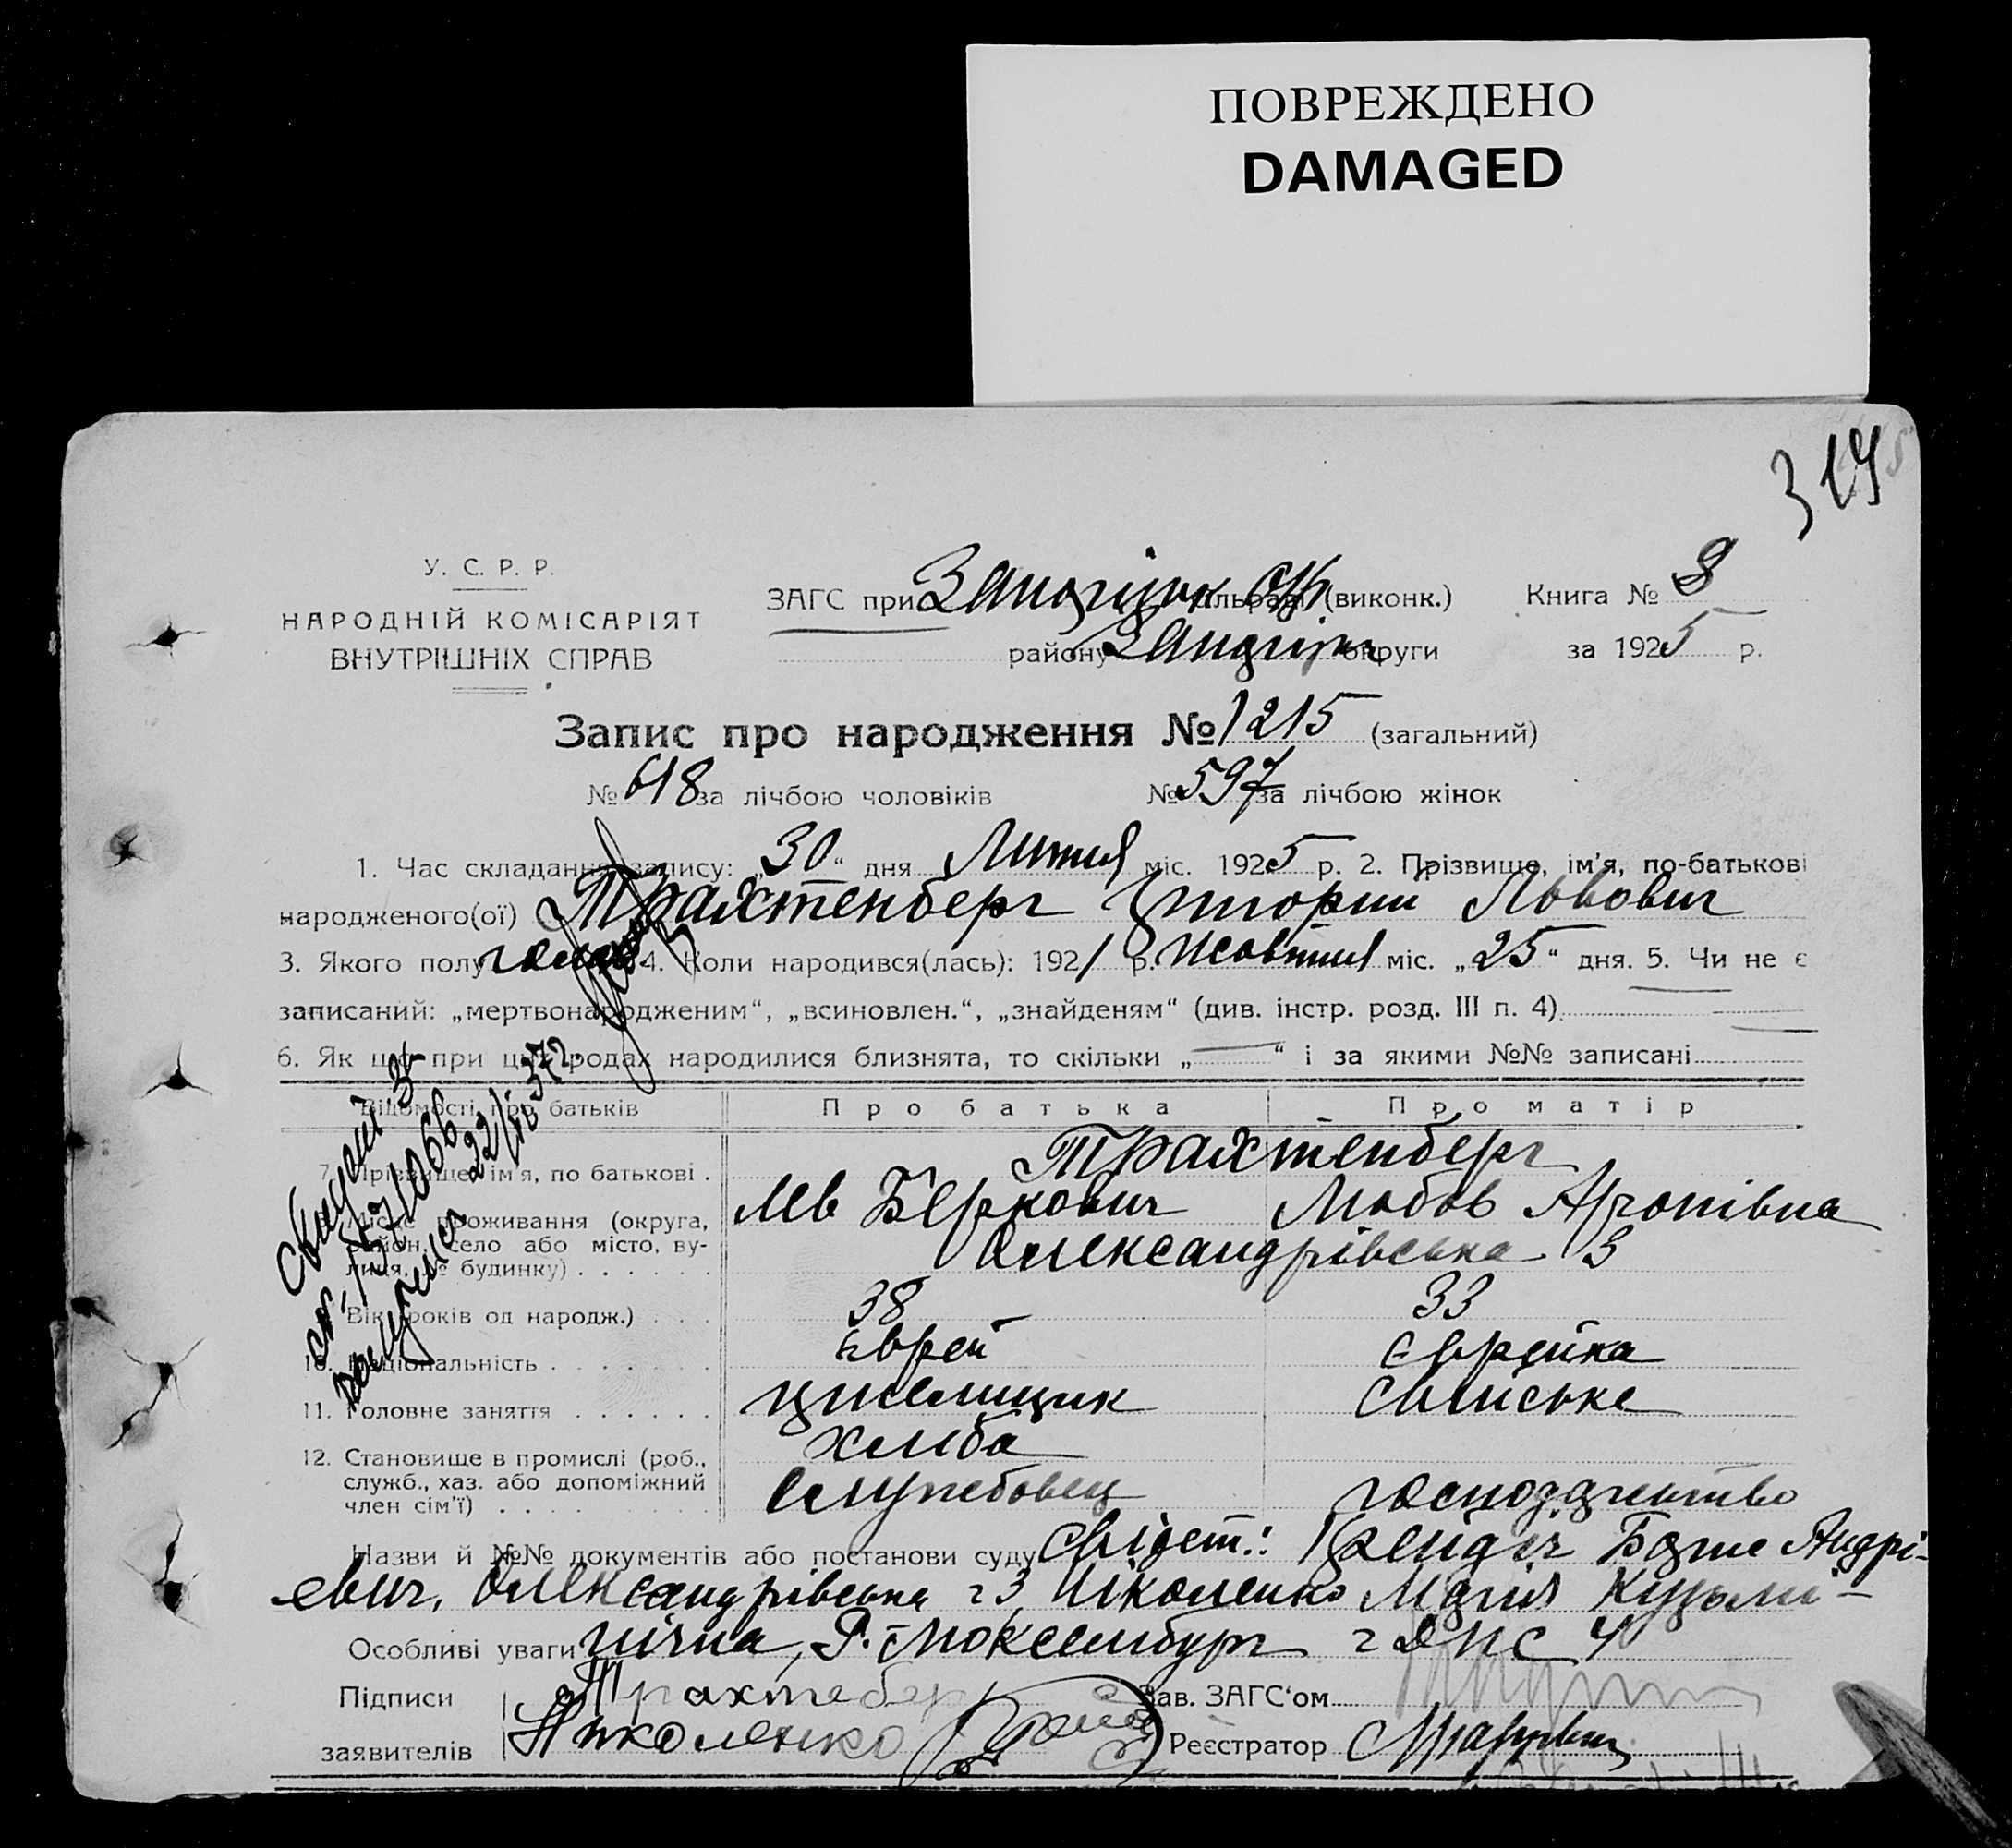 ПОВРЕЖДЕНО
DAMAGED
У. С. Р. Р.
НАРОДНІЙ КОМІСАРІЯТ
ВНУТРІШНІХ СПРАВ
ЗАГС при сільраді (виконк.)
району округи
Книга № 8
за 1925 р.
Запис про народження № 1215 (загальний)
№ 618 за лічбою чоловіків № 597 за лічбою жінок
1. Час складання запису: „30“ дня Липня міс. 1925 р. 2. Прізвище, ім'я, по-батькові
народженого(ої) Трахтенберг Григорий Львович
3. Якого полу 4. Коли народився(лась): 1921 р. Жовтня міс. „25“ дня. 5. Чи не є
записаний: „мертвонародженим“, „всиновлен.“, „знайденям“ (див. інстр. розд. III п. 4)
6. Як що при цих родах народилися близнята, то скільки „—“ і за якими №№ записані
Відомості про батьків Про батька Про матір
7. Прізвище, ім'я, по батькові . Трахтенберг
Лев Беркович Любов Аронівна
Місце проживання (округа, район, село або місто, вулиця, № будинку) Олександрівська 3
Вік (років од народж.) 38 33
10. Національність Єврей Єврейка
11. Головне заняття хліба
12. Становище в промислі (роб., служб., хаз. або допоміжний член сім'ї) Службовец господарство
Назви й №№ документів або постанови суду Свідет.: Андрі-
евич, Олександрівська 23, Ніколенко Марія Кузьмі-
Особливі уваги нічна, Р. Люксембург
Підписи Трахтебер Зав. ЗАГС'ом
заявителів Николенко Реєстратор